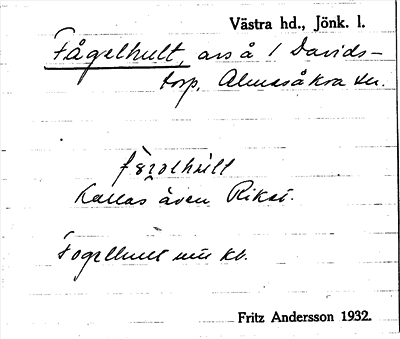 Västra hd., Jönk. l.
Fågelhult, avs å 1 Davids-
torp, Almesåkra sn.
Kallas även Riket.
Fogelhult kb.
Fritz Andersson 1932.